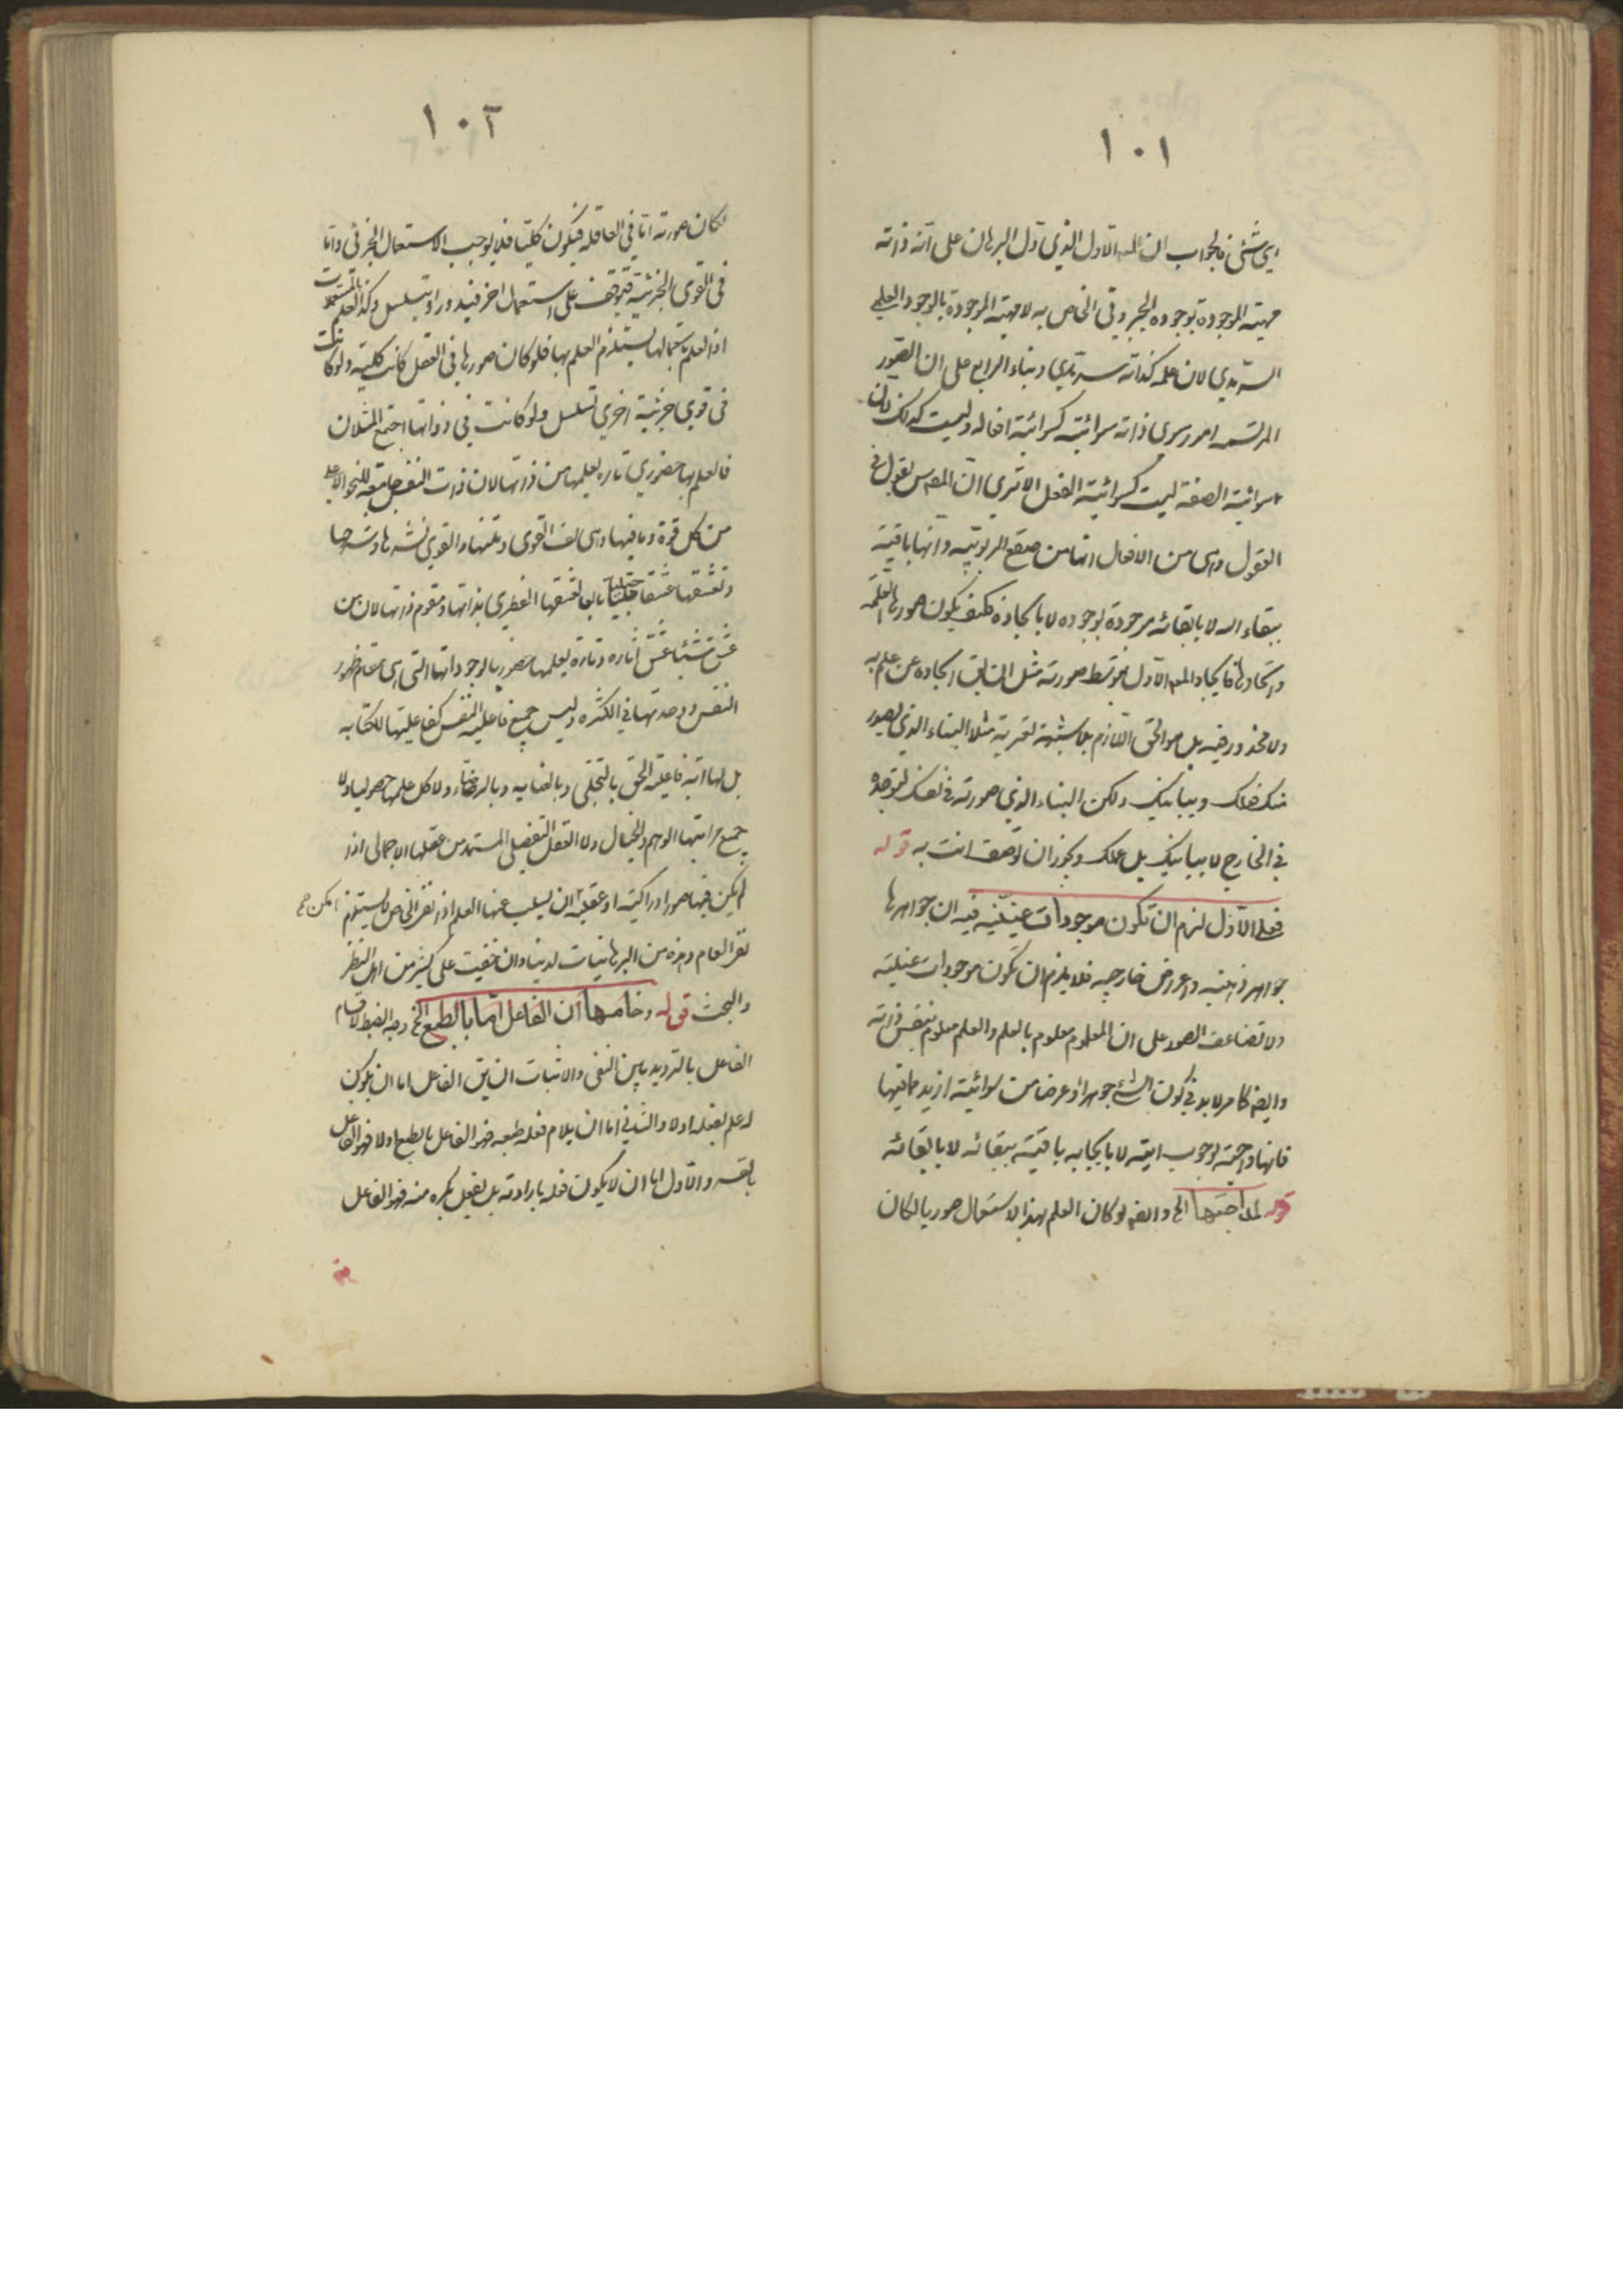 ١٠١
اي شئ فالجواب ان المعلول الاول الذي دل البرهان على انه ذاته
مهيته الموجودة بوجوده الجبروتي الخاص به لا مهيته الموجودة بالوجود العلمي
السرمدي لان علمه كذاته سرمدي وبناء الرابع على ان الصور
المرتسمة امور سوى ذاته سوائية كسوائية افعاله وليست كذلك فان
سوائية الصفة ليست كسوائية الفعل الا ترى ان المص س يقول في
العقول وهى من الافعال انها من صقع الربوبية وانها باقية
ببقاء الله لا بابقائه موجودة بوجوده لا بايجاده فكيف يكون صورها العلمية
واتحادها فايجاد المعلول الاول بتوسط صورته مثل ان يق ايجاده عن علم به
ولا محذور فيه بل هو الحق اللازم بلا شبهة تعتريه مثلا البناء الذي يصدر
منك فعلك ويباينك ولكن البناء الذي صورته في نفسك لتوجده
في الخارج لا يباينك بل علمك ويجوز ان توصف انت به قوله
فعلى الاول لزم ان تكون موجودات عينية فيه ان جواهرها
جواهر ذهنية واعراض خارجيه فلا يلزم ان تكون موجودات عينية
ولا تضاعف الصور على ان المعلوم معلوم بالعلم والعلم معلوم بنفس ذاته
وايضا كما مر لا بد في كون الشئ جوهرا او عرضا من سوائية ازيد مما فيها
فانها واجبة بوجوب ايته لا بايجابه باقية ببقائه لا بابقائه
قوله الخ وايضا لو كان العلم بهذا الاستعمال صوريا لكان
١٠٢
لكان صورته اما في العاقلة فيكون كليا فلا يوجب الاستعمال الجزئي واما
في القوى الجزئية فيتوقف على استعمال اخر فيدور او يتسلسل وكذا العلم بالمستعملات
اذ العلم باستعمالها يستلزم العلم بها فلو كان صورها في العقل كانت كلية ولو كانت
في قوى جزئية اخرى تسلسل ولو كانت في ذواتها اجتمع المثلان
فالعلم بها حضوري تاره بعلمها من ذاتها لان ذات النفس جامعة للنحو الاعلى
من كل قوة وما فيها وهى لف القوى ومتنها والقوى نشرها وشرحها
وتعشقها عشقا جبليا تابعا لتعشقها الفطري بذاتها ومقوم ذاتها لان من
عشق شيئا عشق اثاره وتارة بعلمها حضوريا لوجوداتها التى هى مقام ظهور
النفس ووحدتها في الكثره وليس جميع فاعلية النفس كفاعليتها للكتابه
بل لها اية فاعلية الحق بالتجلى وبالعنايه وبالرضا ولا كل علمها حصوليا ولا
جميع مراتبها الوهم والخيال ولا العقل التفصيلى المستمد من عقلها الاجمالى اذا
لم يكن فيها صور ادراكية او عقلية ان يسلب عنها العلم اذ نفى الخاص لا يستلزم
نفى العام وهذه من البرهانيات لدينا وان خفيت على كثير من اهل النظر
والبحث قوله وخامسها ان الفاعل اما بالطبع الخ وجه الضبط لاقسام
الفاعل بالترديد بين النفى والاثبات ان يق الفاعل اما ان يكون
له علم بفعله او لا والثاني اما ان يلايم فعله طبعه فهو الفاعل بالطبع او لا فهو الفاعل
بالقسر والاول اما ان لا يكون فعله بارادته بل يفعل بكره منه فهو الفاعل